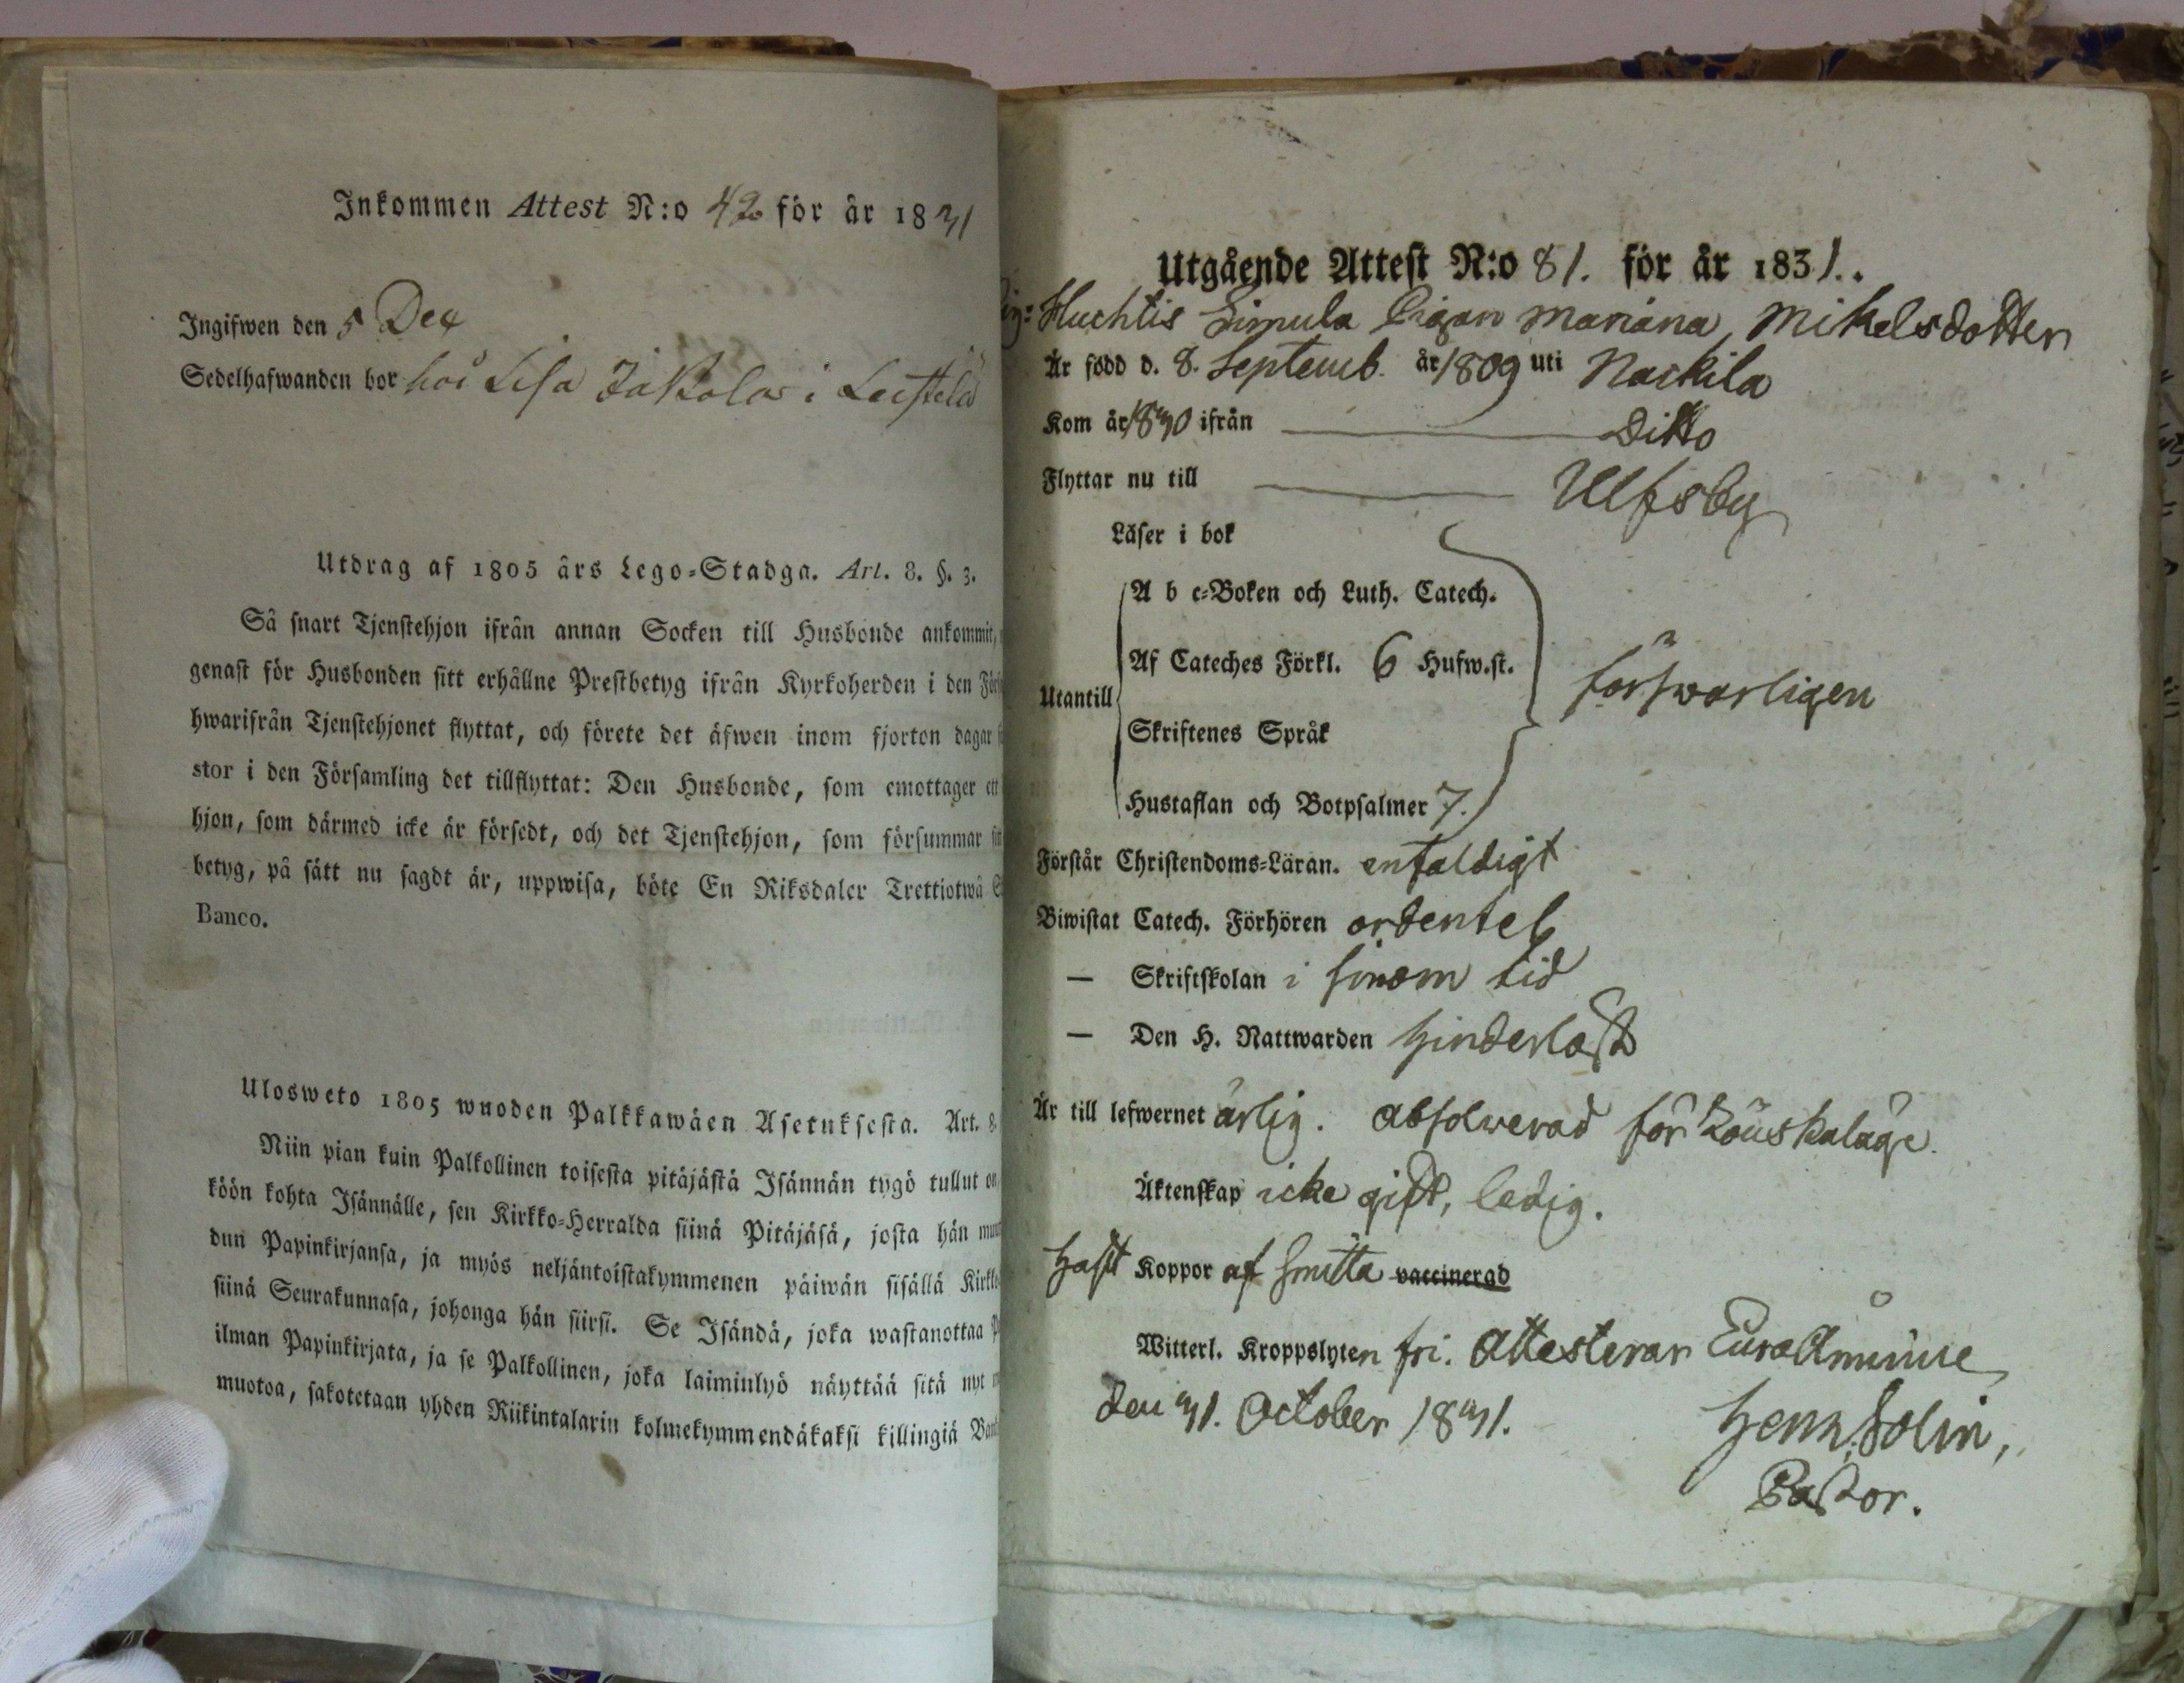 Inkommen Attest N:o 42 för år 1831
Ingifwen den 5 Dec
Sedelhafwanden bor hos Lisa Jakolas i Leistelä
Utdrag af 1805 års Lego-Stadga. Art. 8. §. 3.
Så snart Tjenstehjon ifrån annan Socken till Husbonde ankommit,
genast för Husbonden sitt erhållne Prestbetyg ifrån Kyrkoherden i den
hwarifrån Tjenstehjonet flyttat, och förete det äfwen inom fjorton dagar
stor i den Församling det tillflyttat: Den Husbonde, som emottager ett
hjon, som därmed icke är försedt, och det Tjenstehjon, som försummar
betyg, på sätt nu sagdt är, uppwisa, böte En Riksdaler Trettiotwå
Banco.
Ulosweto 1805 wuoden Palkkawäen Asetuksesta. Art. 8.
Niin pian kuin Palkollinen toisesta pitäjästä Isännän tygö tullut on
köön kohta Isännälle, sen Kirkko-Herralda siinä Pitäjäsä, josta hän
dun Papinkirjansa, ja myös neljäntoistakymmenen päiwän sisällä
siinä Seurakunnasa, johonga hän siirsi. Se Isändä, joka wastanottaa
ilman Papinkirjata, ja se Palkollinen, joka laiminlyö näyttää sitä nyt
muotoa, sakotetaan yhden Riikintalarin kolmekymmendäkaksi killingiä
Utgående Attest N:o 81. för år 1831.
Huchtis Simula Pigan Mariana Mikelsdotter
Är född d. 8. Septemb. år 1809 uti Nackila
Kom år 1830 ifrån Ditto
Flyttar nu till Ulfsby
Läser i bok
A b c-Boken och Luth. Catech.
Af Cateches Förkl. 6 Hufw.st.
Utantill
försvarligen
Skriftenes Språk
Hustaflan och Botpsalmer 7.
Förstår Christendoms-Läran. enfaldigt
Biwistat Catech. Förhören ordentel
— Skriftskolan i sinom tid
— Den H. Nattwarden hinderlöst
Är till lefwernet ärlig. absolverad för Lönskaläge.
Äktenskap icke gift, ledig.
Haft Koppor af Smitta vaccinerad
Witterl. Kroppslyten fri. Attesterar Eura Åminne
den 31. October 1831.
Henr. Solin,
Pastor.